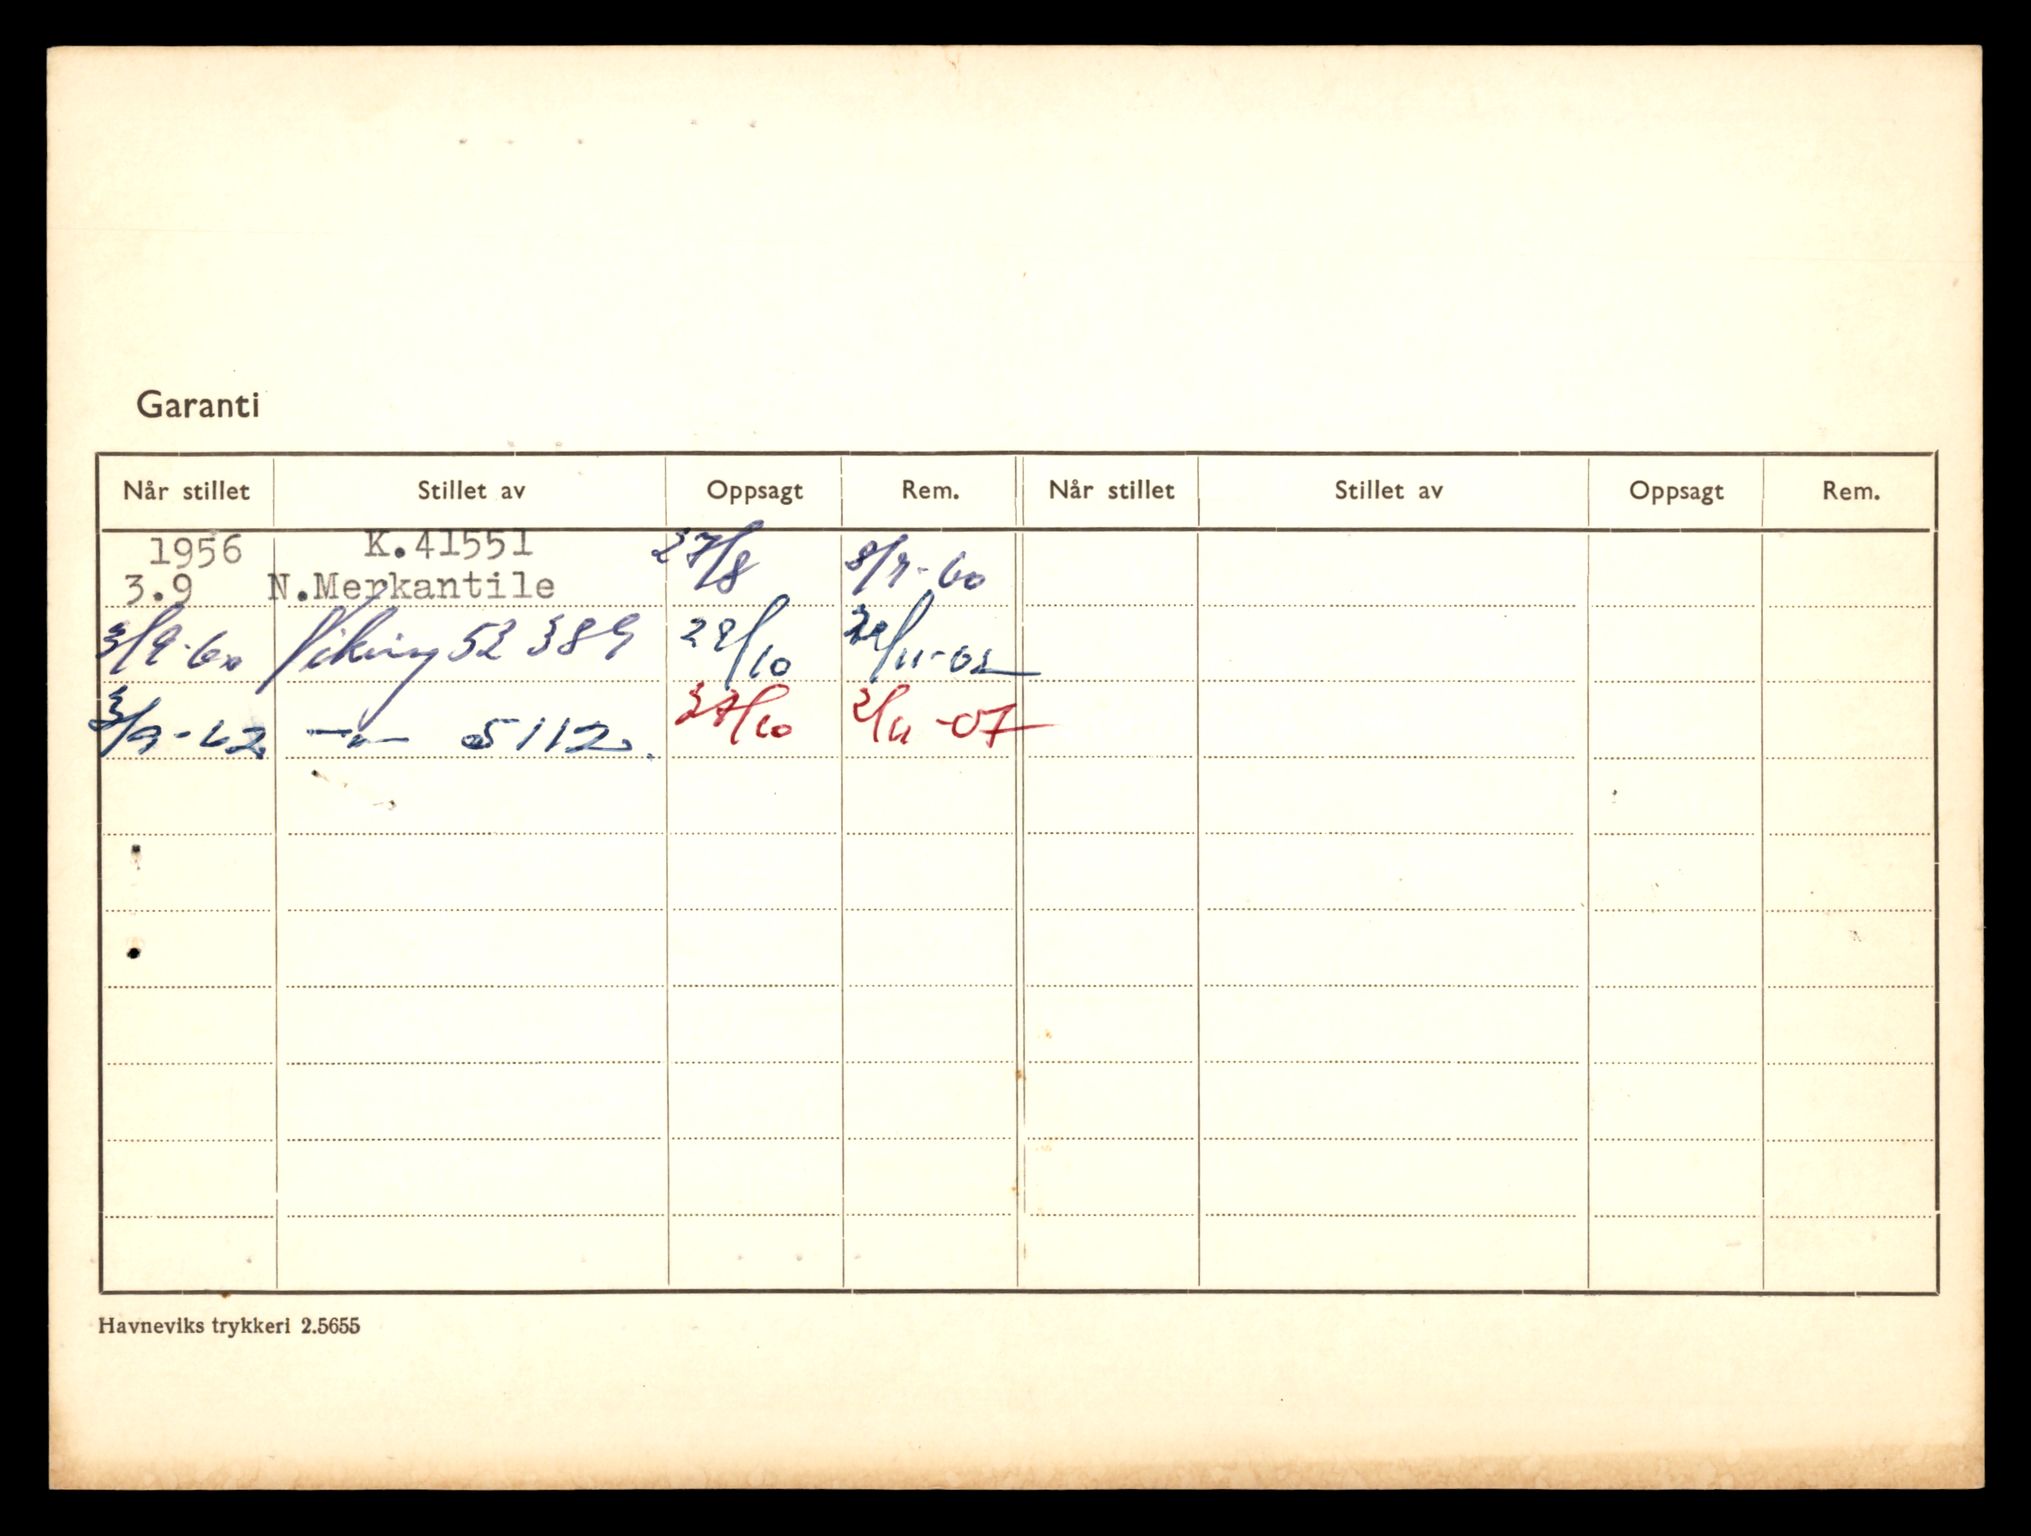 Garanti
Når stillet Stillet av Oppsagt Rem. Når stillet Stillet av Oppsagt Rem.
1956 K.41551 27/8 8/9-60
3.9 N.Merkantile
3/9-60 Viking 52389 29/10
3/9-62 —"— 5112 2/11
Havneviks trykkeri 2.5655